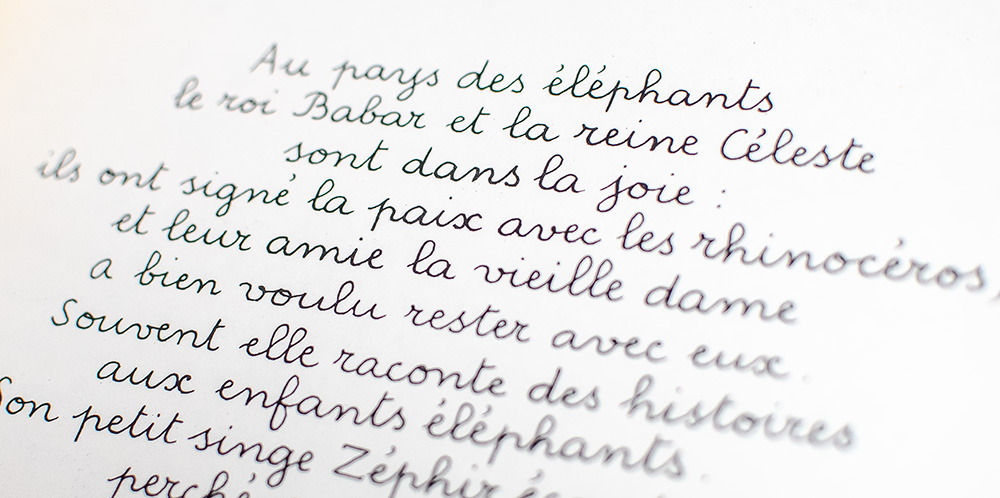 Au pays des éléphants
le roi Babar et la reine Céleste
sont dans la joie :
ils ont signé la paix avec les rhinocéros,
et leur amie la vieille dame
a bien voulu rester avec eux.
Souvent elle raconte des histoires
aux enfants éléphants.
Son petit singe Zéphir
perché